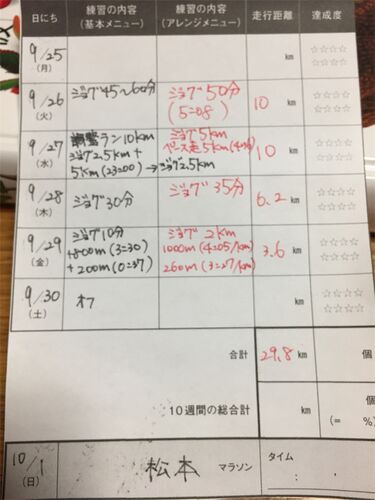 日にち 練習の内容 (基本メニュー) 練習の内容 (アレンジメニュー) 走行距離 達成度
9/25 (月) km ☆☆☆☆ ☆☆☆☆
9/26 (火) ジョグ45~60分 ジョグ50分 (5=08) 10 km ☆☆☆☆ ☆☆☆☆
9/27 (水) 調整ラン10km ジョグ5km
ジョグ2.5km+ ペース走5km
5km(23=00)→ジョグ2.5km 10 km ☆☆☆☆ ☆☆☆☆
9/28 (木) ジョグ30分 ジョグ35分 6.2 km ☆☆☆☆ ☆☆☆☆
9/29 (金) ジョグ10分 ジョグ2km
+800m(3=30) 1000m(4=05/km)
+200m(0=37) 260m(3=27/km) 3.6 km ☆☆☆☆ ☆☆☆☆
9/30 (土) オフ km ☆☆☆☆ ☆☆☆☆
合計 29.8 km 個
10週間の総合計 km 個
(= %)
10/1 (日) 松本 マラソン タイム : ,